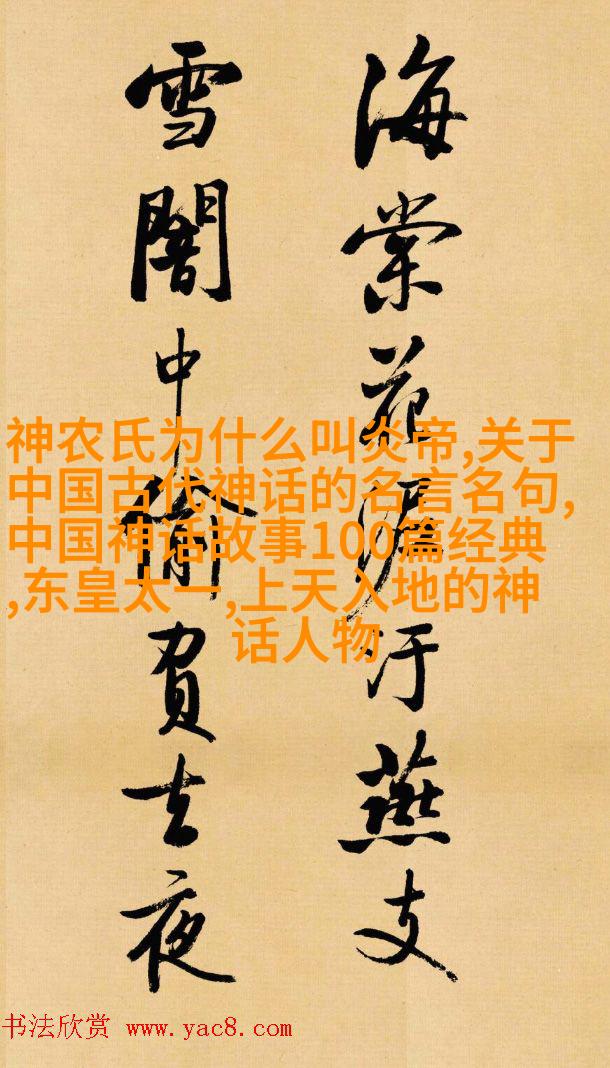 海棠花泥汙燕支
雪闇中偷負去夜
神农氏为什么叫炎帝,关于
中国古代神话的名言名句,
中国神话故事100篇经典
,东皇太一,上天入地的神
话人物
书法欣赏 www.yac8.com